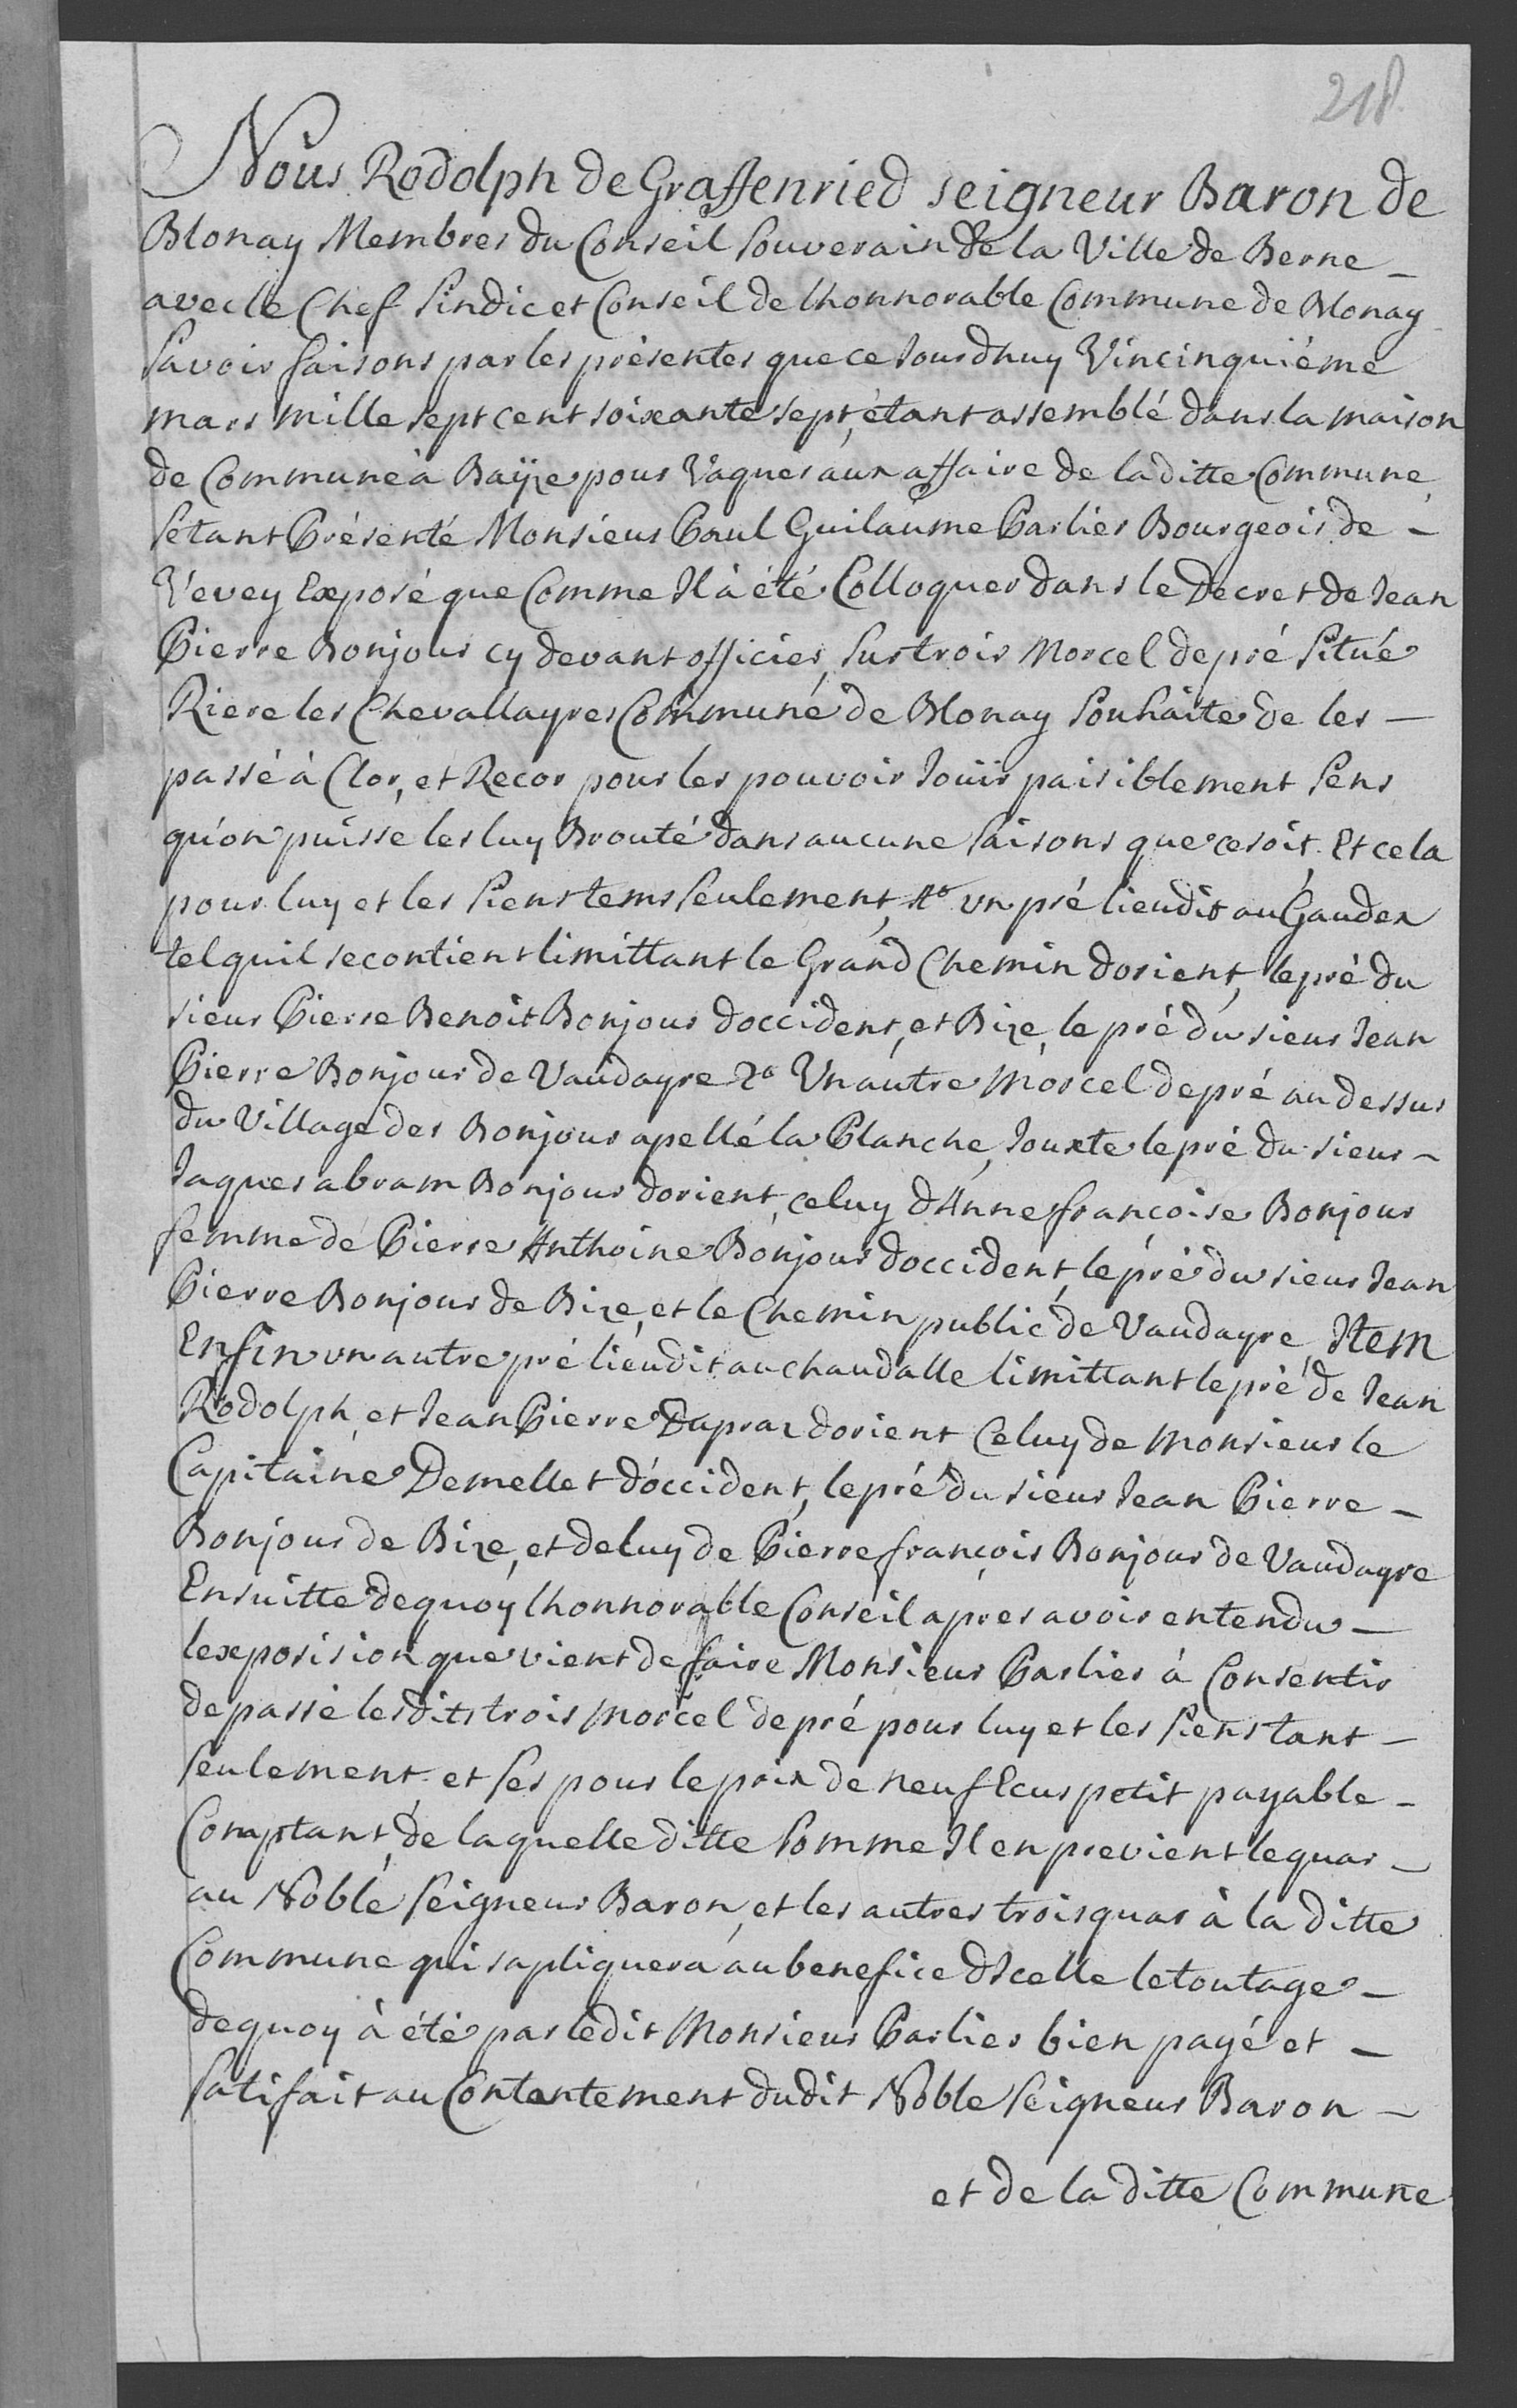 218
Nous Rodolph de Graffenried seigneur Baron de
Blonay Membres du Conseil Souverain de la Ville de Berne _
avec le Chef Sindic et Conseil de lhonnorable Commune de Blonay
Savoir faisons par les présentes que ce Jourdhuy Vincinquiéme
mars mille sept cent soixante sept, étant assemblé dans la maison
de Commune à Baÿze pour Vaquer aux affaire de la ditte Commune
Sétant Présenté Monsieur Paul Guilaume Parlier Bourgeois de -
Vevey Exposé que Comme Il à été Colloquer dans le Decret de Jean
Pierre Bonjour cy devant officier, Sur trois Morcel de pré Situé
Riere les Chevallayres Commune de Blonay Souhaite de les —
passé à Clos, et Recor pour les pouvoir Jouïr paisiblement Sens
qu'on puisse les luy Brouté dans aucune Saisons que ce soit. Et cela
pour luy et les Siens tems Seulement, 1º un pré lieudit au Gaudex
tel quil se contient limittant le Grand Chemin dorient, le pré du
sieur Pierre Benoit Bonjour doccident, et Bize, le pré du sieur Jean
Pierre Bonjour de Vaudayre 2º Un autre Morcel de pré au dessus
du Village des Bonjour apellé la Planche, Jouxte le pré du sieur -
Jaques abram Bonjour dorient, celuy d'Anne françoise Bonjour
femme de Pierre Anthoine Bonjour doccident, le pré du sieur Jean
Pierre Bonjour de Bize, et le Chemin public de Vaudayre, Item
Enfin un autre pré lieudit au chaudalle limittant le pré de Jean
Rodolph, et Jean Pierre Dupraz dorient Celuy de Monsieur le
Capitaine Demellet d'occident, le pré du sieur Jean Pierre -
Bonjour de Bize, et deluy de Pierre françois Bonjour de Vaudayre
Ensuitte dequoy lhonnorable Conseil apres avoir entendu —
lexposision que vient de faire Monsieur Parlier à Consentir
de passé lesdits trois Morcel de pré pour luy et les Siens tant —
Seulement, et ses pour le prix de neuf Ecus petit payable -
Comptant, de laquelle ditte Somme Il en previent le quar -
au Noble Seigneur Baron, et les autres trois quar à la ditte
Commune qui sapliquera au benefice d'Icelle le toutage -
dequoy à été par ledit Monsieur Parlier bien payé et -
Satifait au Contentement dudit Noble Seigneur Baron -
et de la ditte Commune